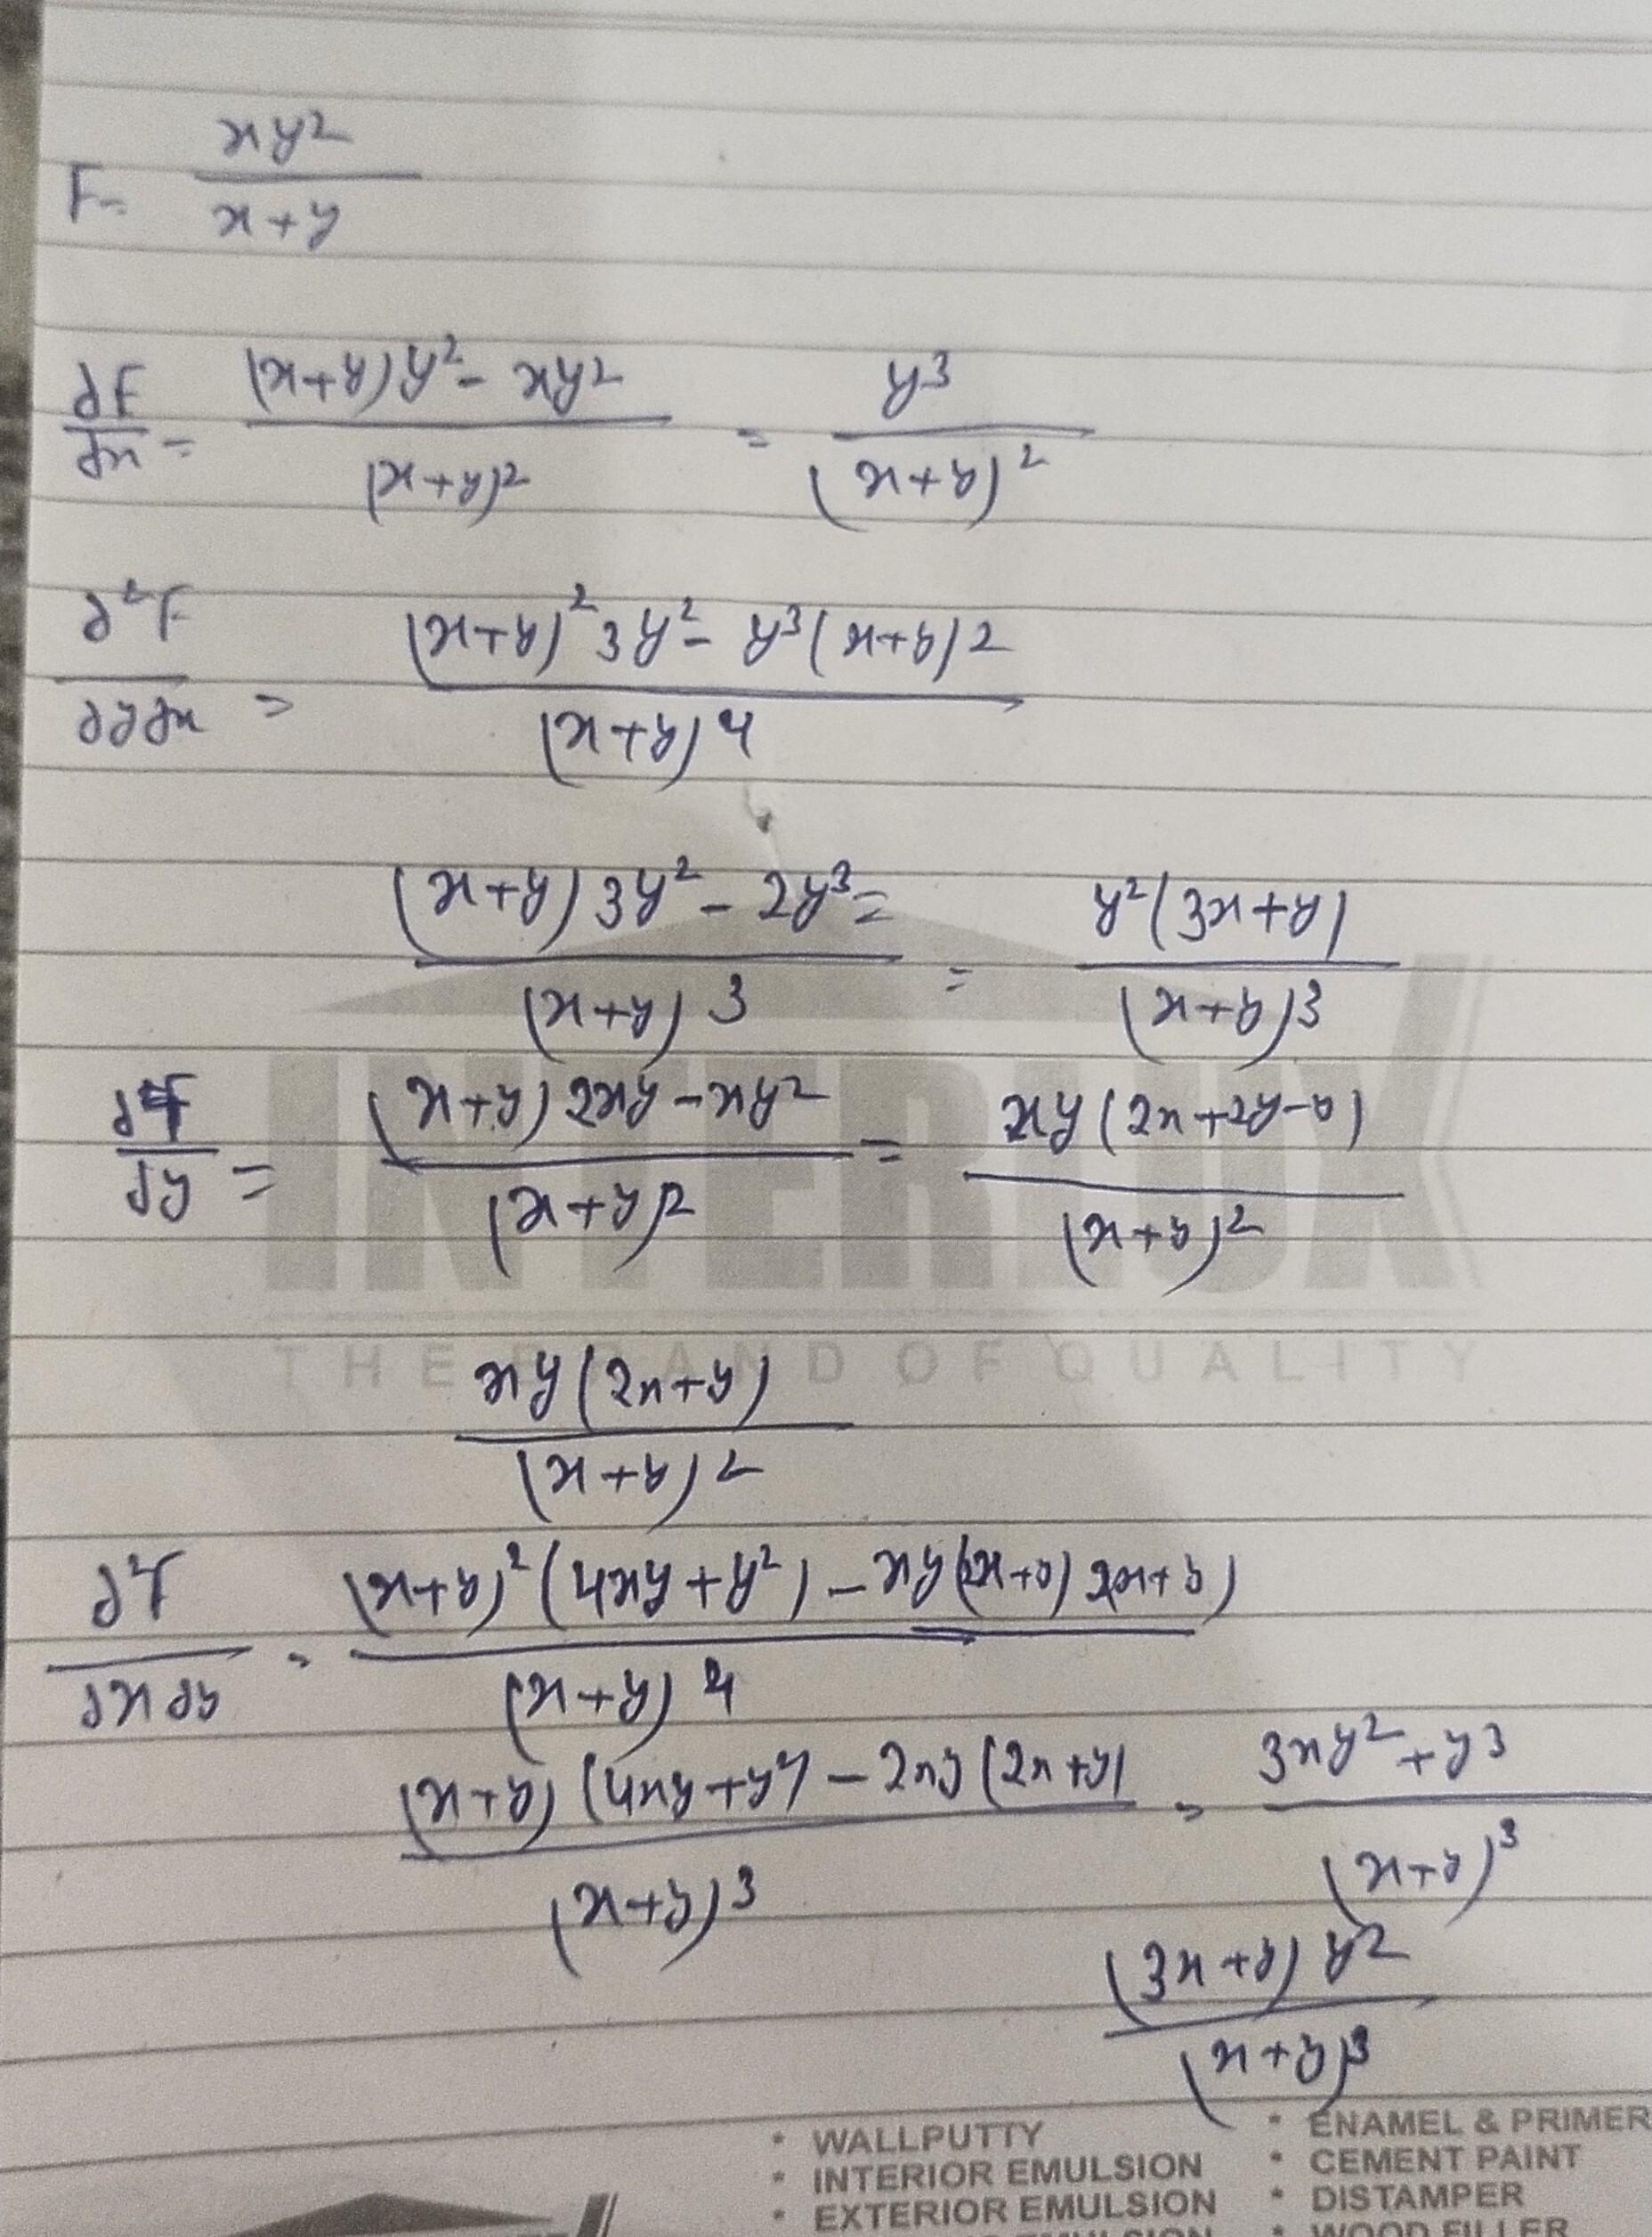 F = xy²/(x+y)
∂F/∂x = ((x+y)y² - xy²)/(x+y)² = y³/(x+y)²
∂²F/∂y∂x = ((x+y)² 3y² - y³(x+y)2)/(x+y)4
((x+y)3y² - 2y³ =)/(x+y)3 = y²(3x+y)/(x+y)3
∂F/∂y = ((x+y)2xy - xy²)/(x+y)² = xy(2x+2y-y)/(x+y)²
INTERLUX
THE BRAND OF QUALITY
xy(2x+y)/(x+y)²
∂²F/∂x∂y = ((x+y)²(4xy+y²) - xy(2x+y)2(x+y))/(x+y)4
((x+y)(4xy+y²) - 2xy(2x+y))/(x+y)3 = (3xy²+y3)/(x+y)³
(3x+y)y²/(x+y)3
• WALLPUTTY
• INTERIOR EMULSION
• EXTERIOR EMULSION
• ENAMEL & PRIMER
• CEMENT PAINT
• DISTAMPER
• WOOD FILLER